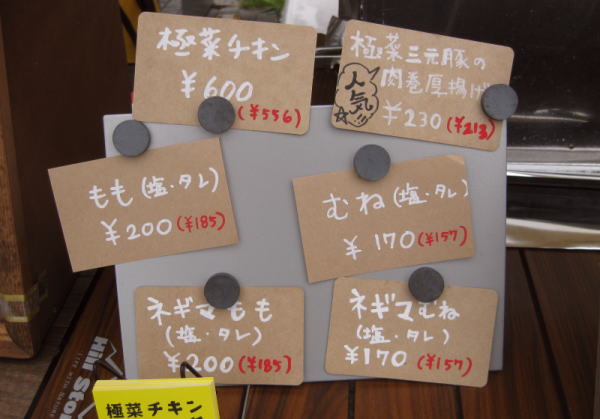 極菜チキン
¥600
(¥556)
極菜三元豚の
肉巻厚揚げ
人気!!
¥230 (¥213)
もも(塩・タレ)
¥200(¥185)
むね(塩・タレ)
¥170(¥157)
ネギマもも
(塩・タレ)
¥200(¥185)
ネギマむね
(塩・タレ)
¥170(¥157)
極菜チキン